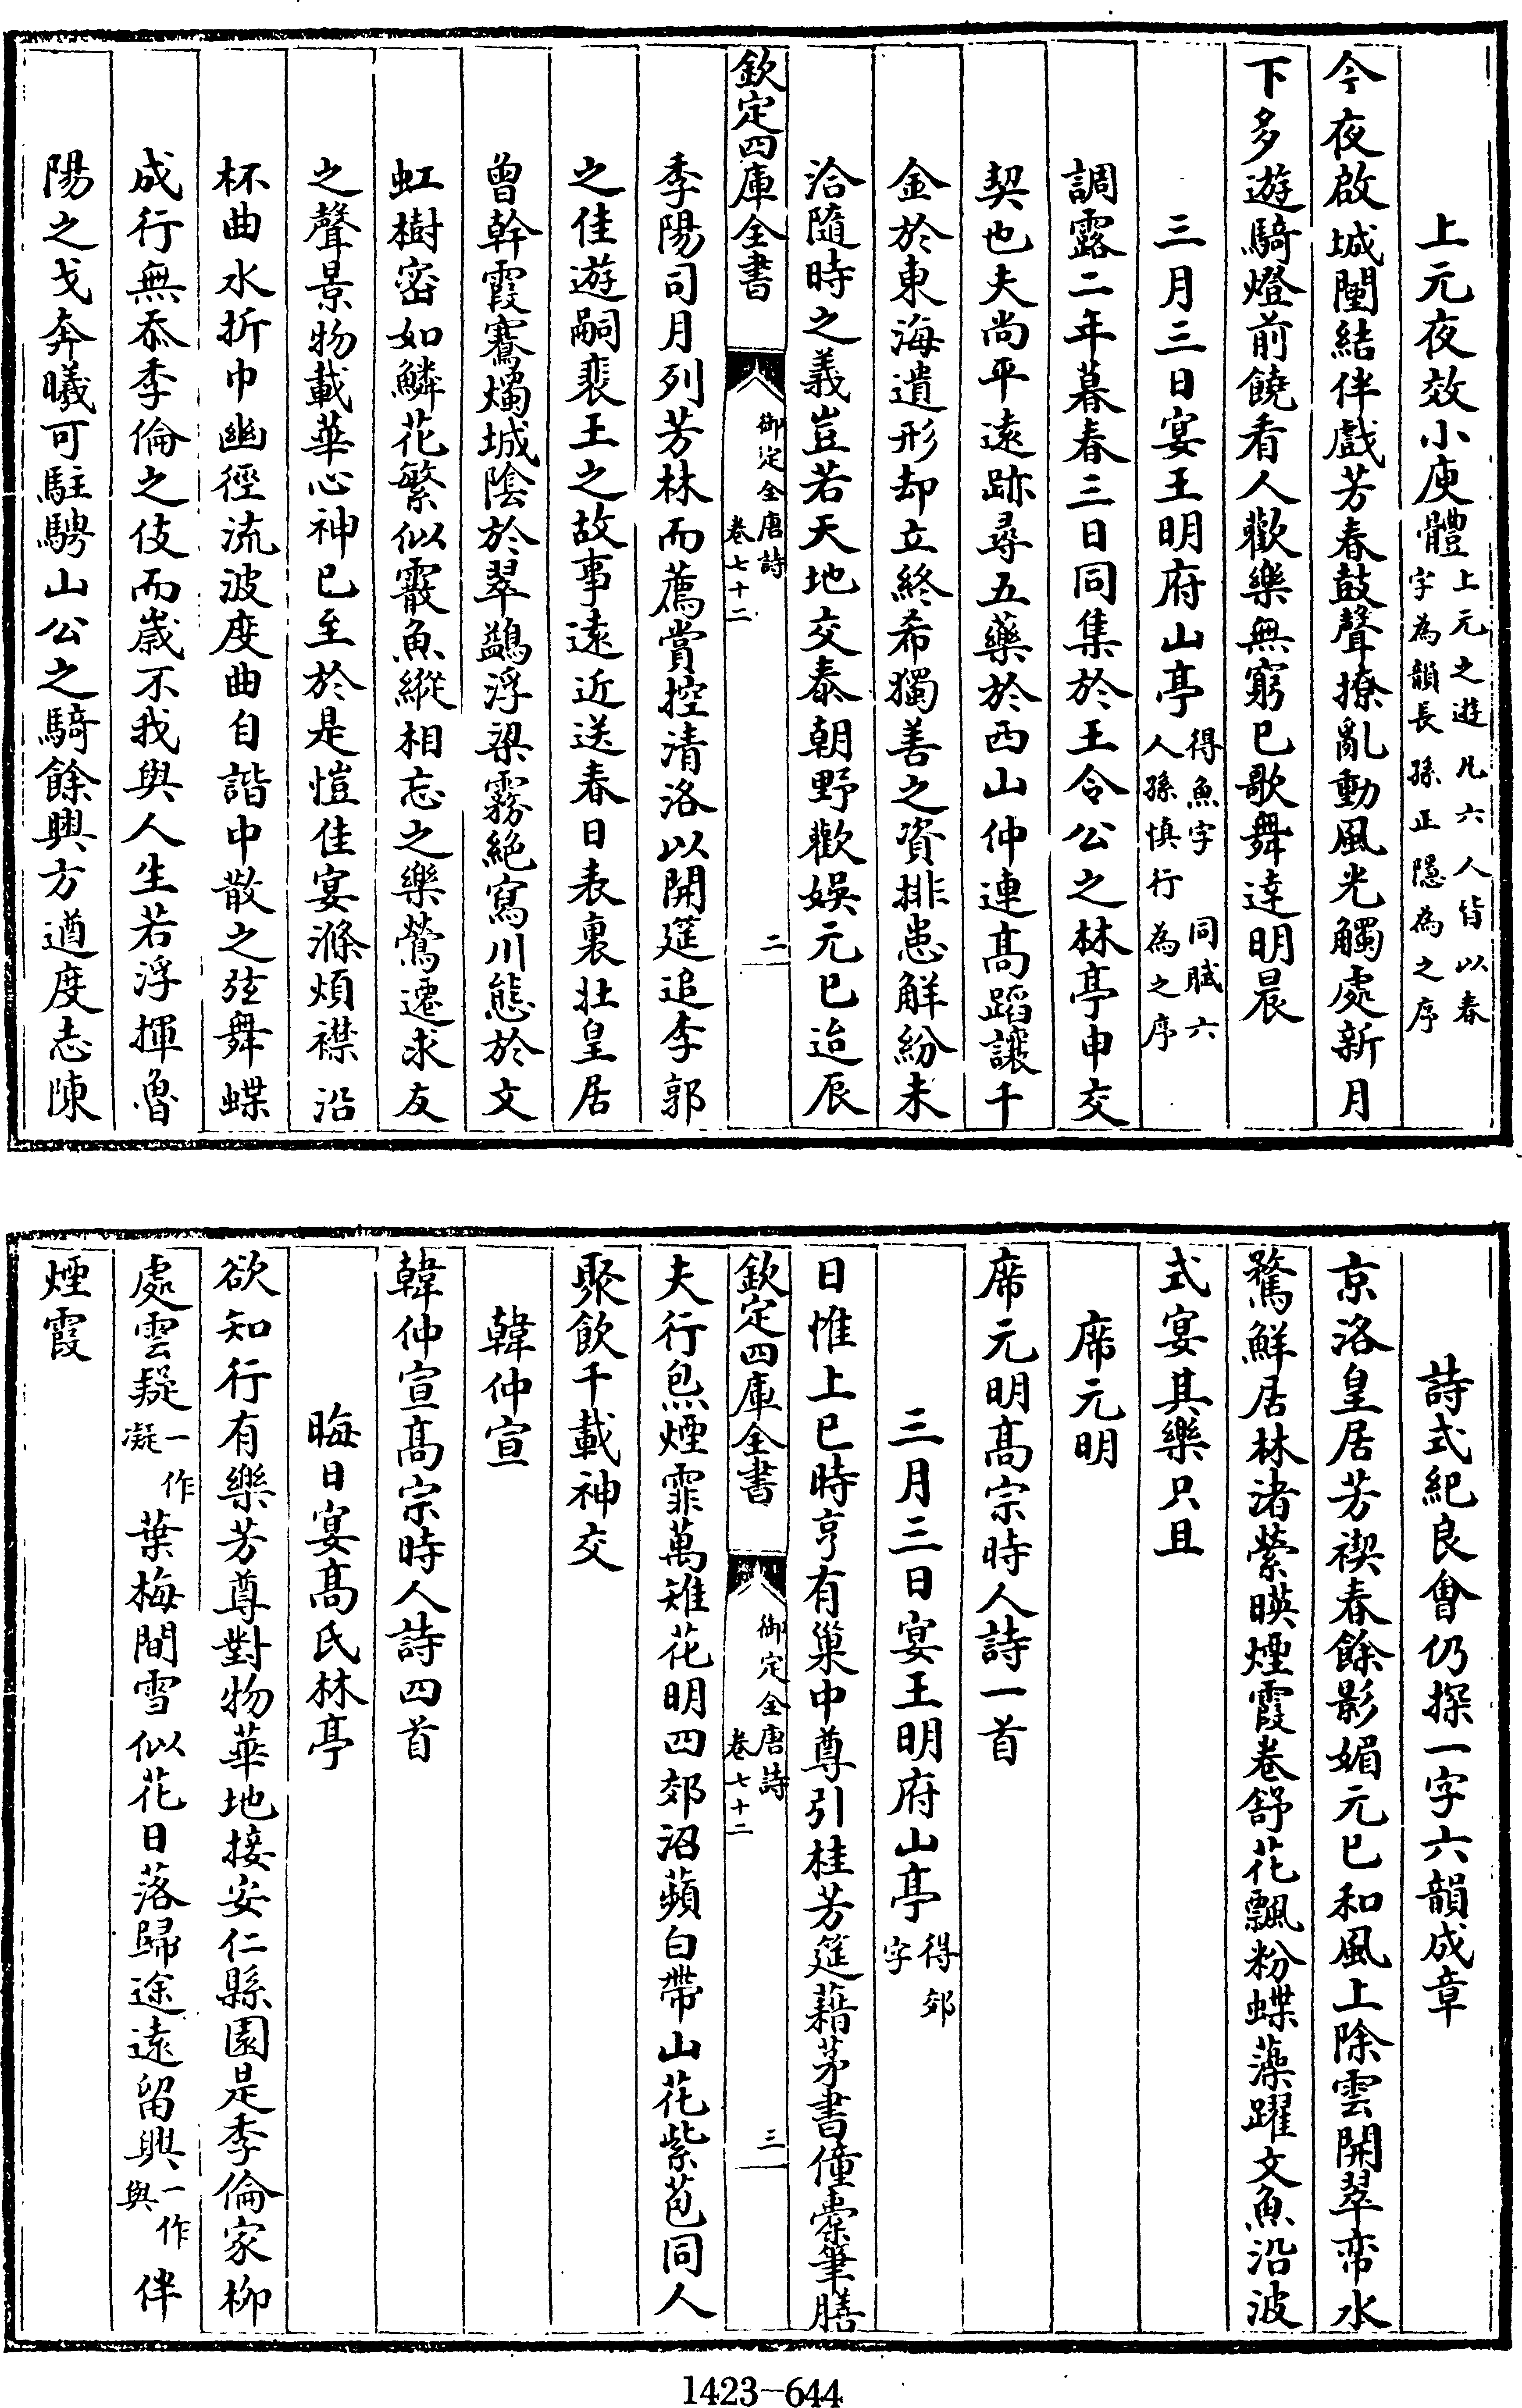 上元夜效小庾體上元之遊凡六人皆以春字為韻長孫正隱為之序
今夜啟城闉結伴戲芳春鼓聲撩亂動風光觸處新月
下多遊騎燈前饒看人歡樂無窮已歌舞達明晨
三月三日宴王明府山亭得魚字同賦六人孫慎行為之序
調露二年暮春三日同集於王令公之林亭申交
契也夫尚平遠跡尋五藥於西山仲連高蹈讓千
金於東海遺形却立終希獨善之資排患解紛未
洽隨時之義豈若天地交泰朝野歡娛元巳迨辰
欽定四庫全書 御定全唐詩 卷七十二 二
季陽司月列芳林而薦賞控清洛以開筵追李郭
之佳遊嗣裴王之故事遠近送春日表裏壯皇居
曾幹霞騫燭城陰於翠鷁浮梁霧絕寫川態於文
虹樹密如鱗花繁似霰魚縱相忘之樂鶯遷求友
之聲景物載華心神已至於是愷佳宴滌煩襟沿
杯曲水折巾幽徑流波度曲自諧中散之弦舞蝶
成行無忝季倫之伎而歲不我與人生若浮揮魯
陽之戈奔曦可駐騁山公之騎餘興方遒度志陳
詩式紀良會仍探一字六韻成章
京洛皇居芳禊春餘影媚元巳和風上除雲開翠帟水
騖鮮居林渚縈暎煙霞卷舒花飄粉蝶藻躍文魚沿波
式宴其樂只且
席元明
席元明高宗時人詩一首
三月三日宴王明府山亭得郊字
日惟上巳時亨有巢中尊引桂芳筵藉茅書僮橐筆膳
欽定四庫全書 御定全唐詩 卷七十二 三
夫行炰煙霏萬雉花明四郊沼蘋白帶山花紫苞同人
聚飲千載神交
韓仲宣
韓仲宣高宗時人詩四首
晦日宴高氏林亭
欲知行有樂芳尊對物華地接安仁縣園是季倫家柳
處雲疑一作凝葉梅間雪似花日落歸途遠留興一作與伴
煙霞
1423-644